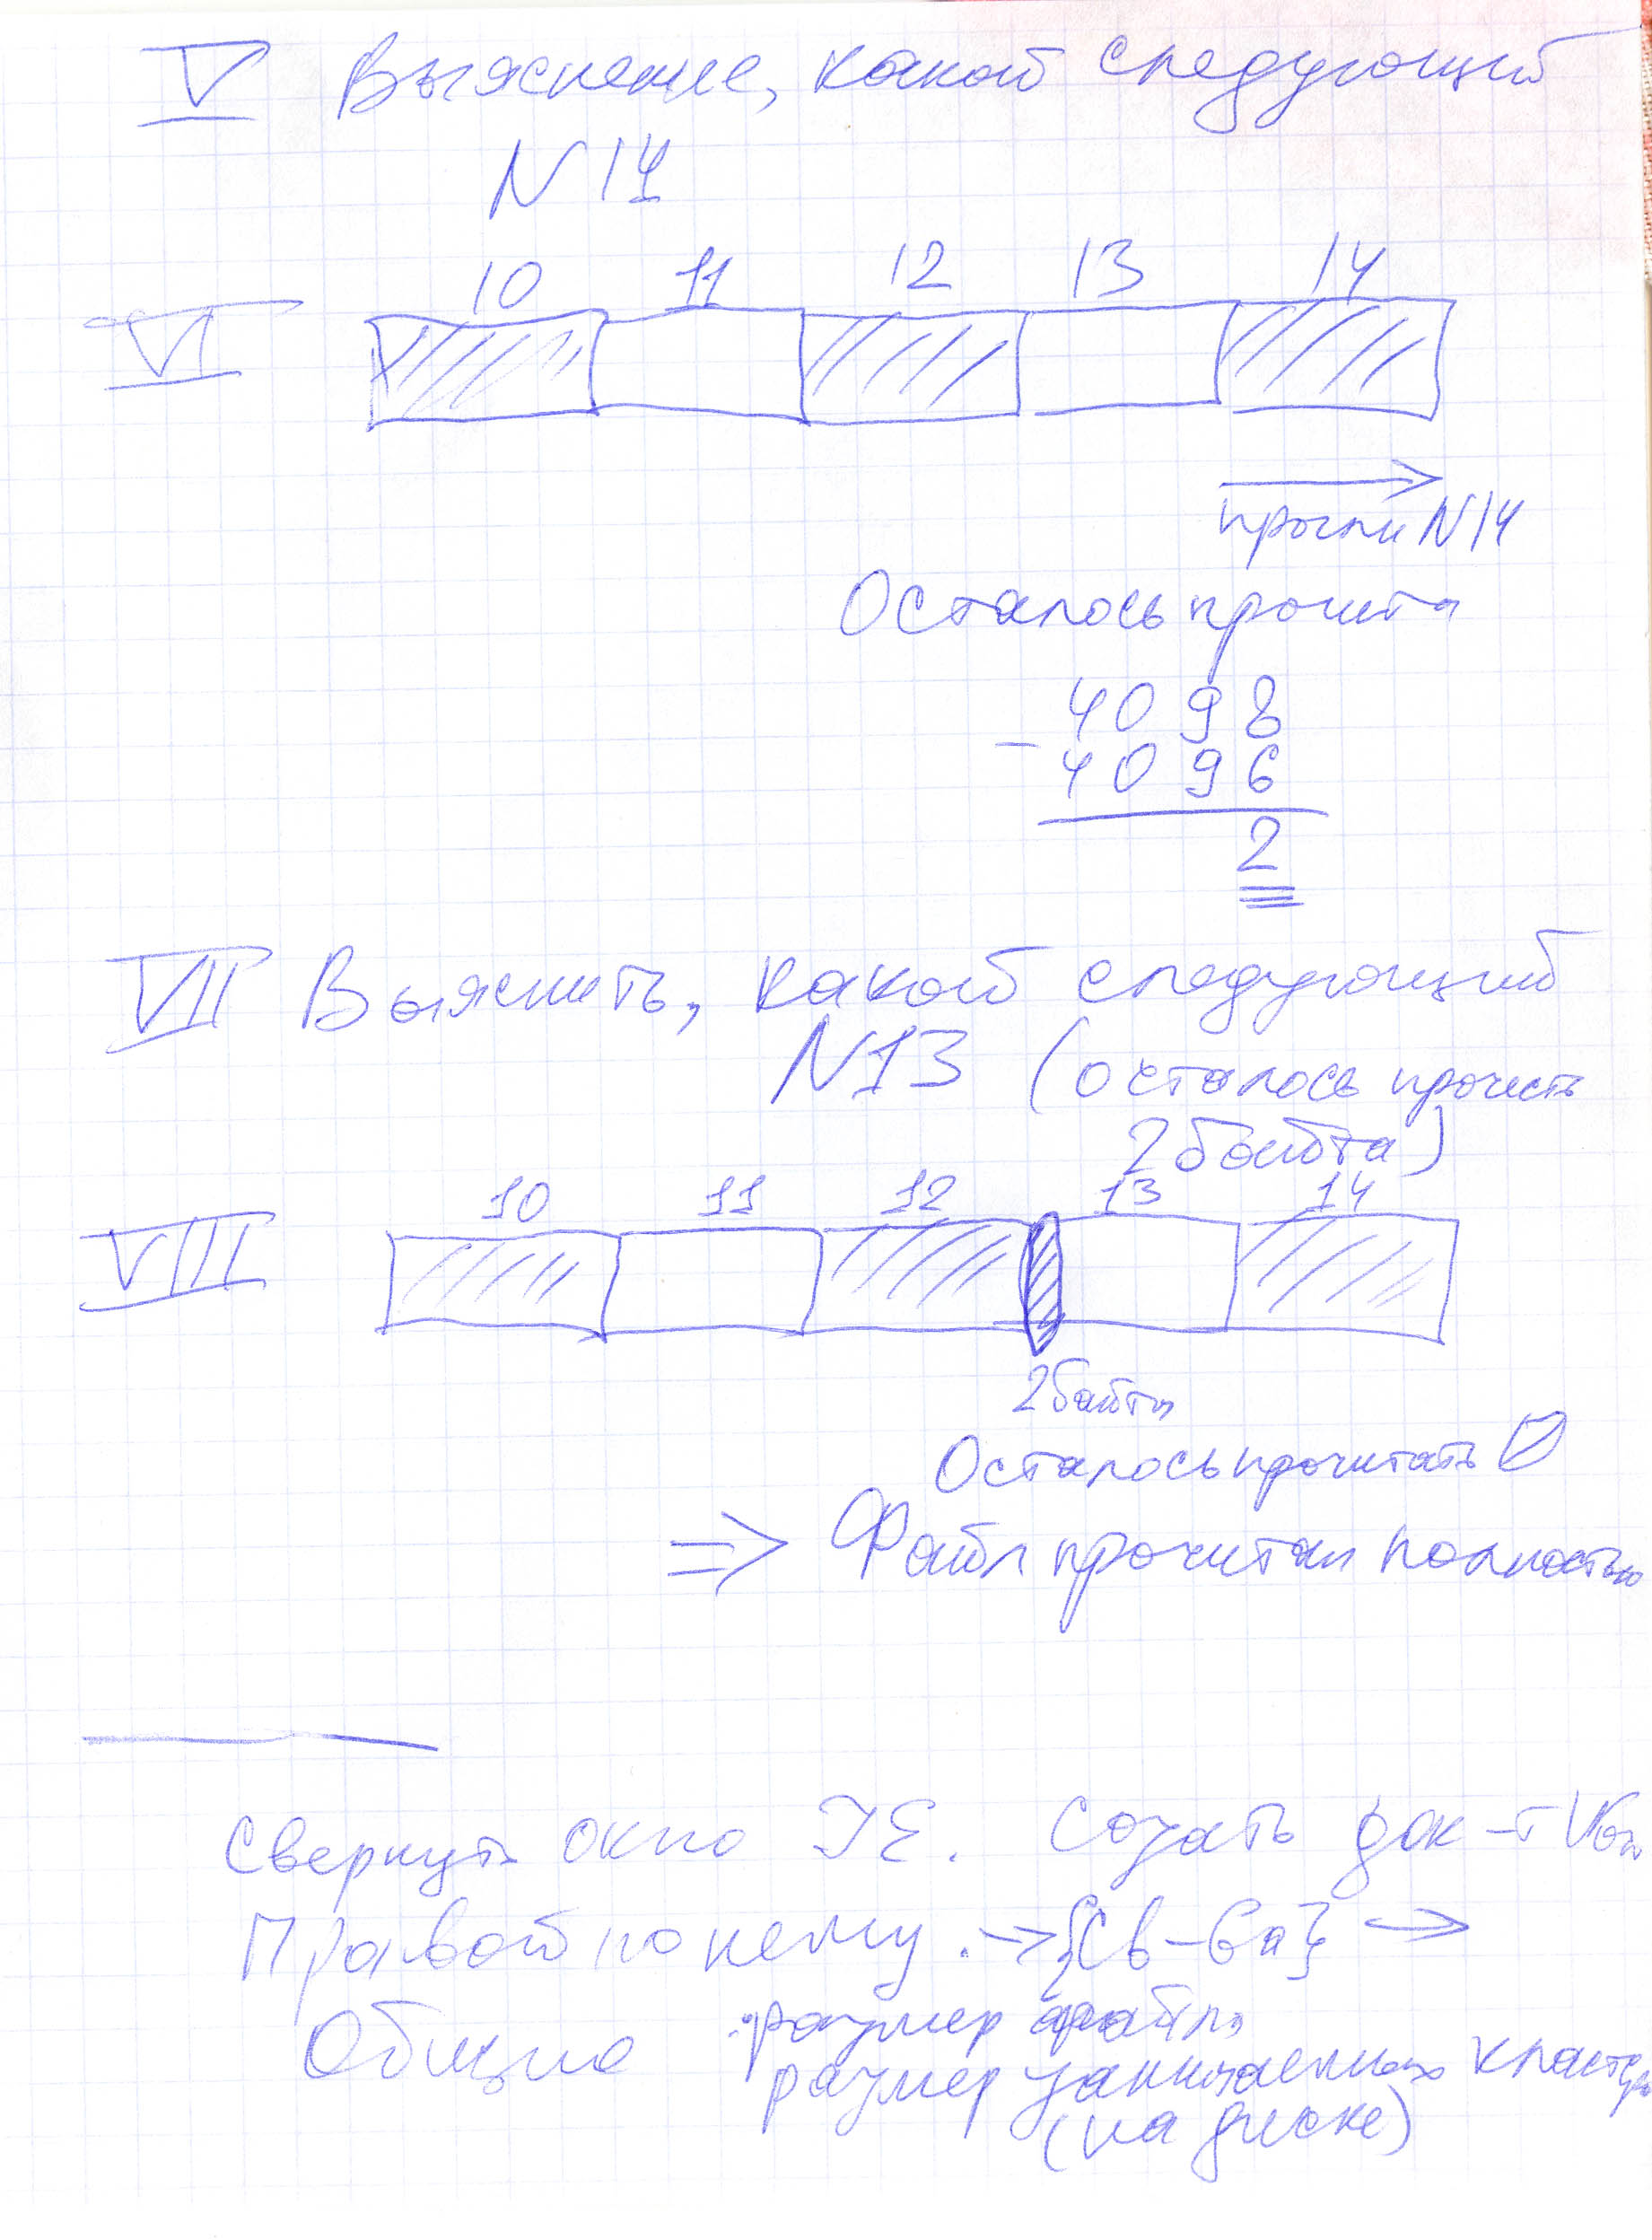 V Выяснение, какой следующий
N14
10 11 12 13 14
VI
прочли N14
Осталось прочита
4098
- 4096
2
VII Выяснить, какой следующий
N13 (осталось прочесть
2 байта)
10 11 12 13 14
VIII
2 байта
Осталось прочитать 0
⇒ Файл прочитан полностью
Свернуть окно IE. Создать док-т
Правой по нему. → {Св-ва} →
Общие размер файла
размер занимаемых кластеров
(на диске)